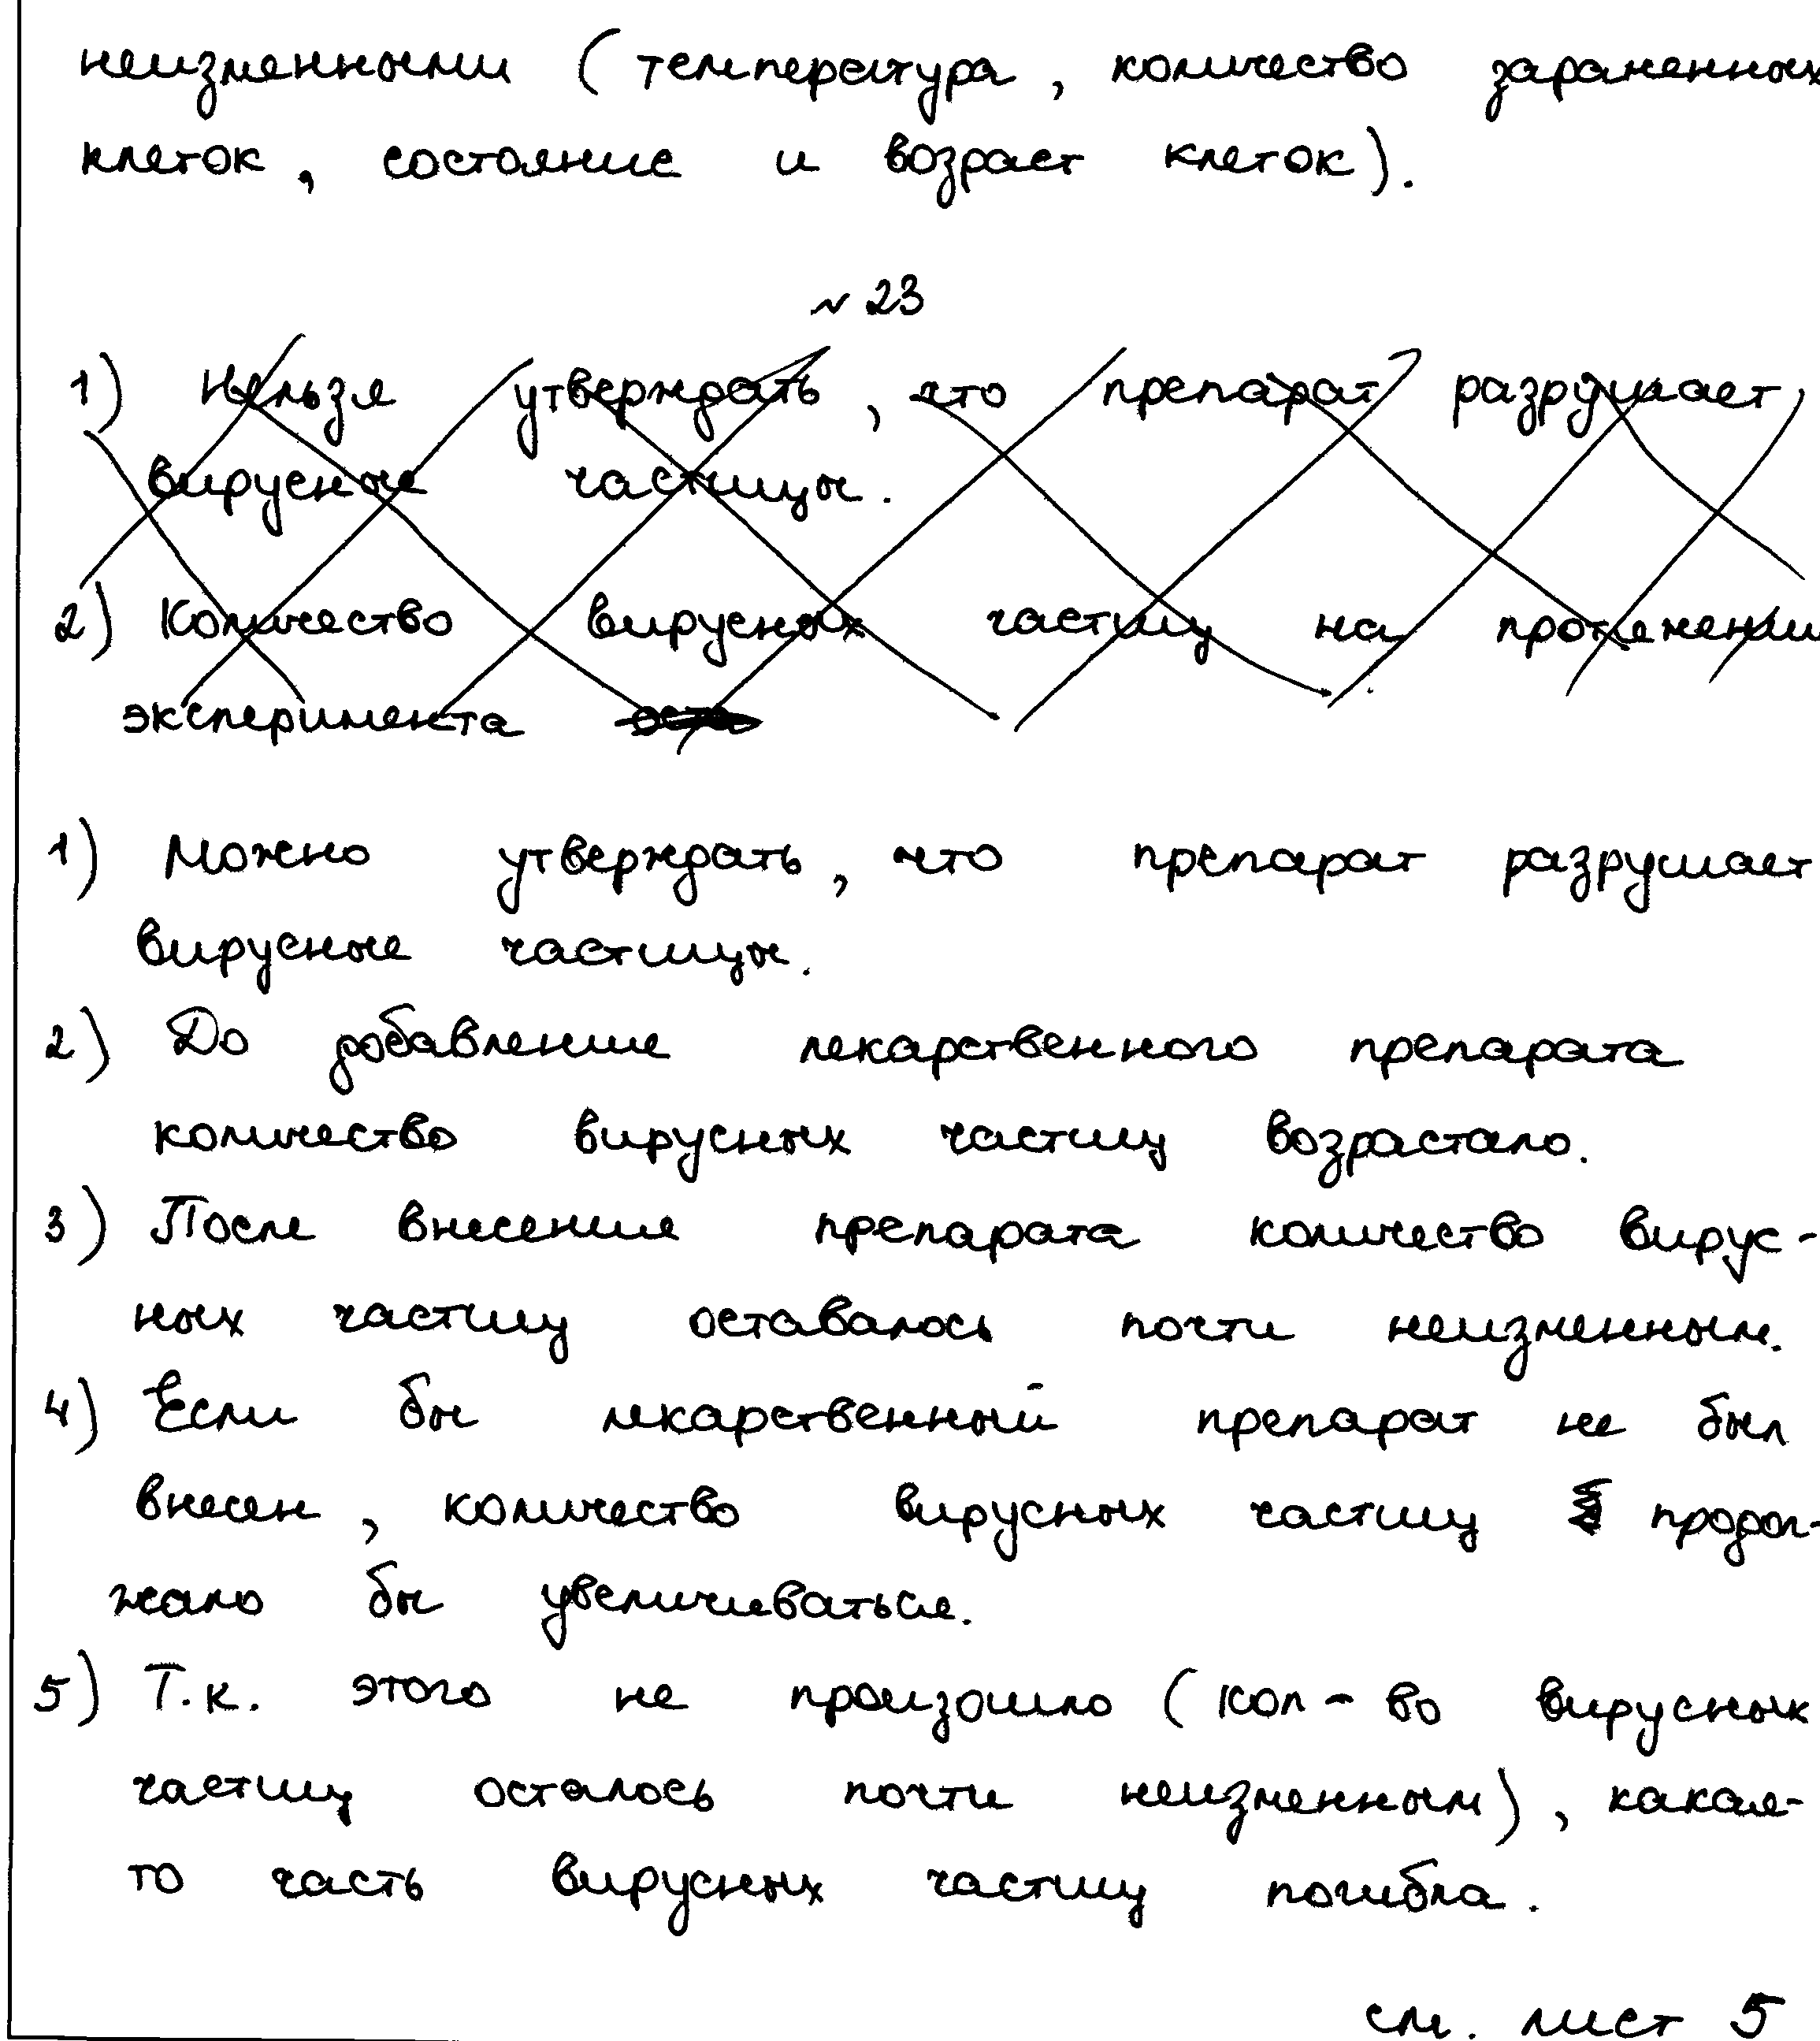 неизменными (температура, количество зараженных
клеток, состояние и возраст клеток).
~ 23
1) Нельзя утверждать, что препарат разрушает
вирусные частицы.
2) Количество вирусных частиц на протяжении
эксперимента
1) Можно утверждать, что препарат разрушает
вирусные частицы.
2) До добавления лекарственного препарата
количество вирусных частиц возрастало.
3) После внесения препарата количество вирус-
ных частиц оставалось почти неизменным.
4) Если бы лекарственный препарат не был
внесен, количество вирусных частиц продол-
жало бы увеличиваться.
5) Т.к. этого не произошло (кол-во вирусных
частиц осталось почти неизменным), какая-
то часть вирусных частиц погибла.
см. лист 5